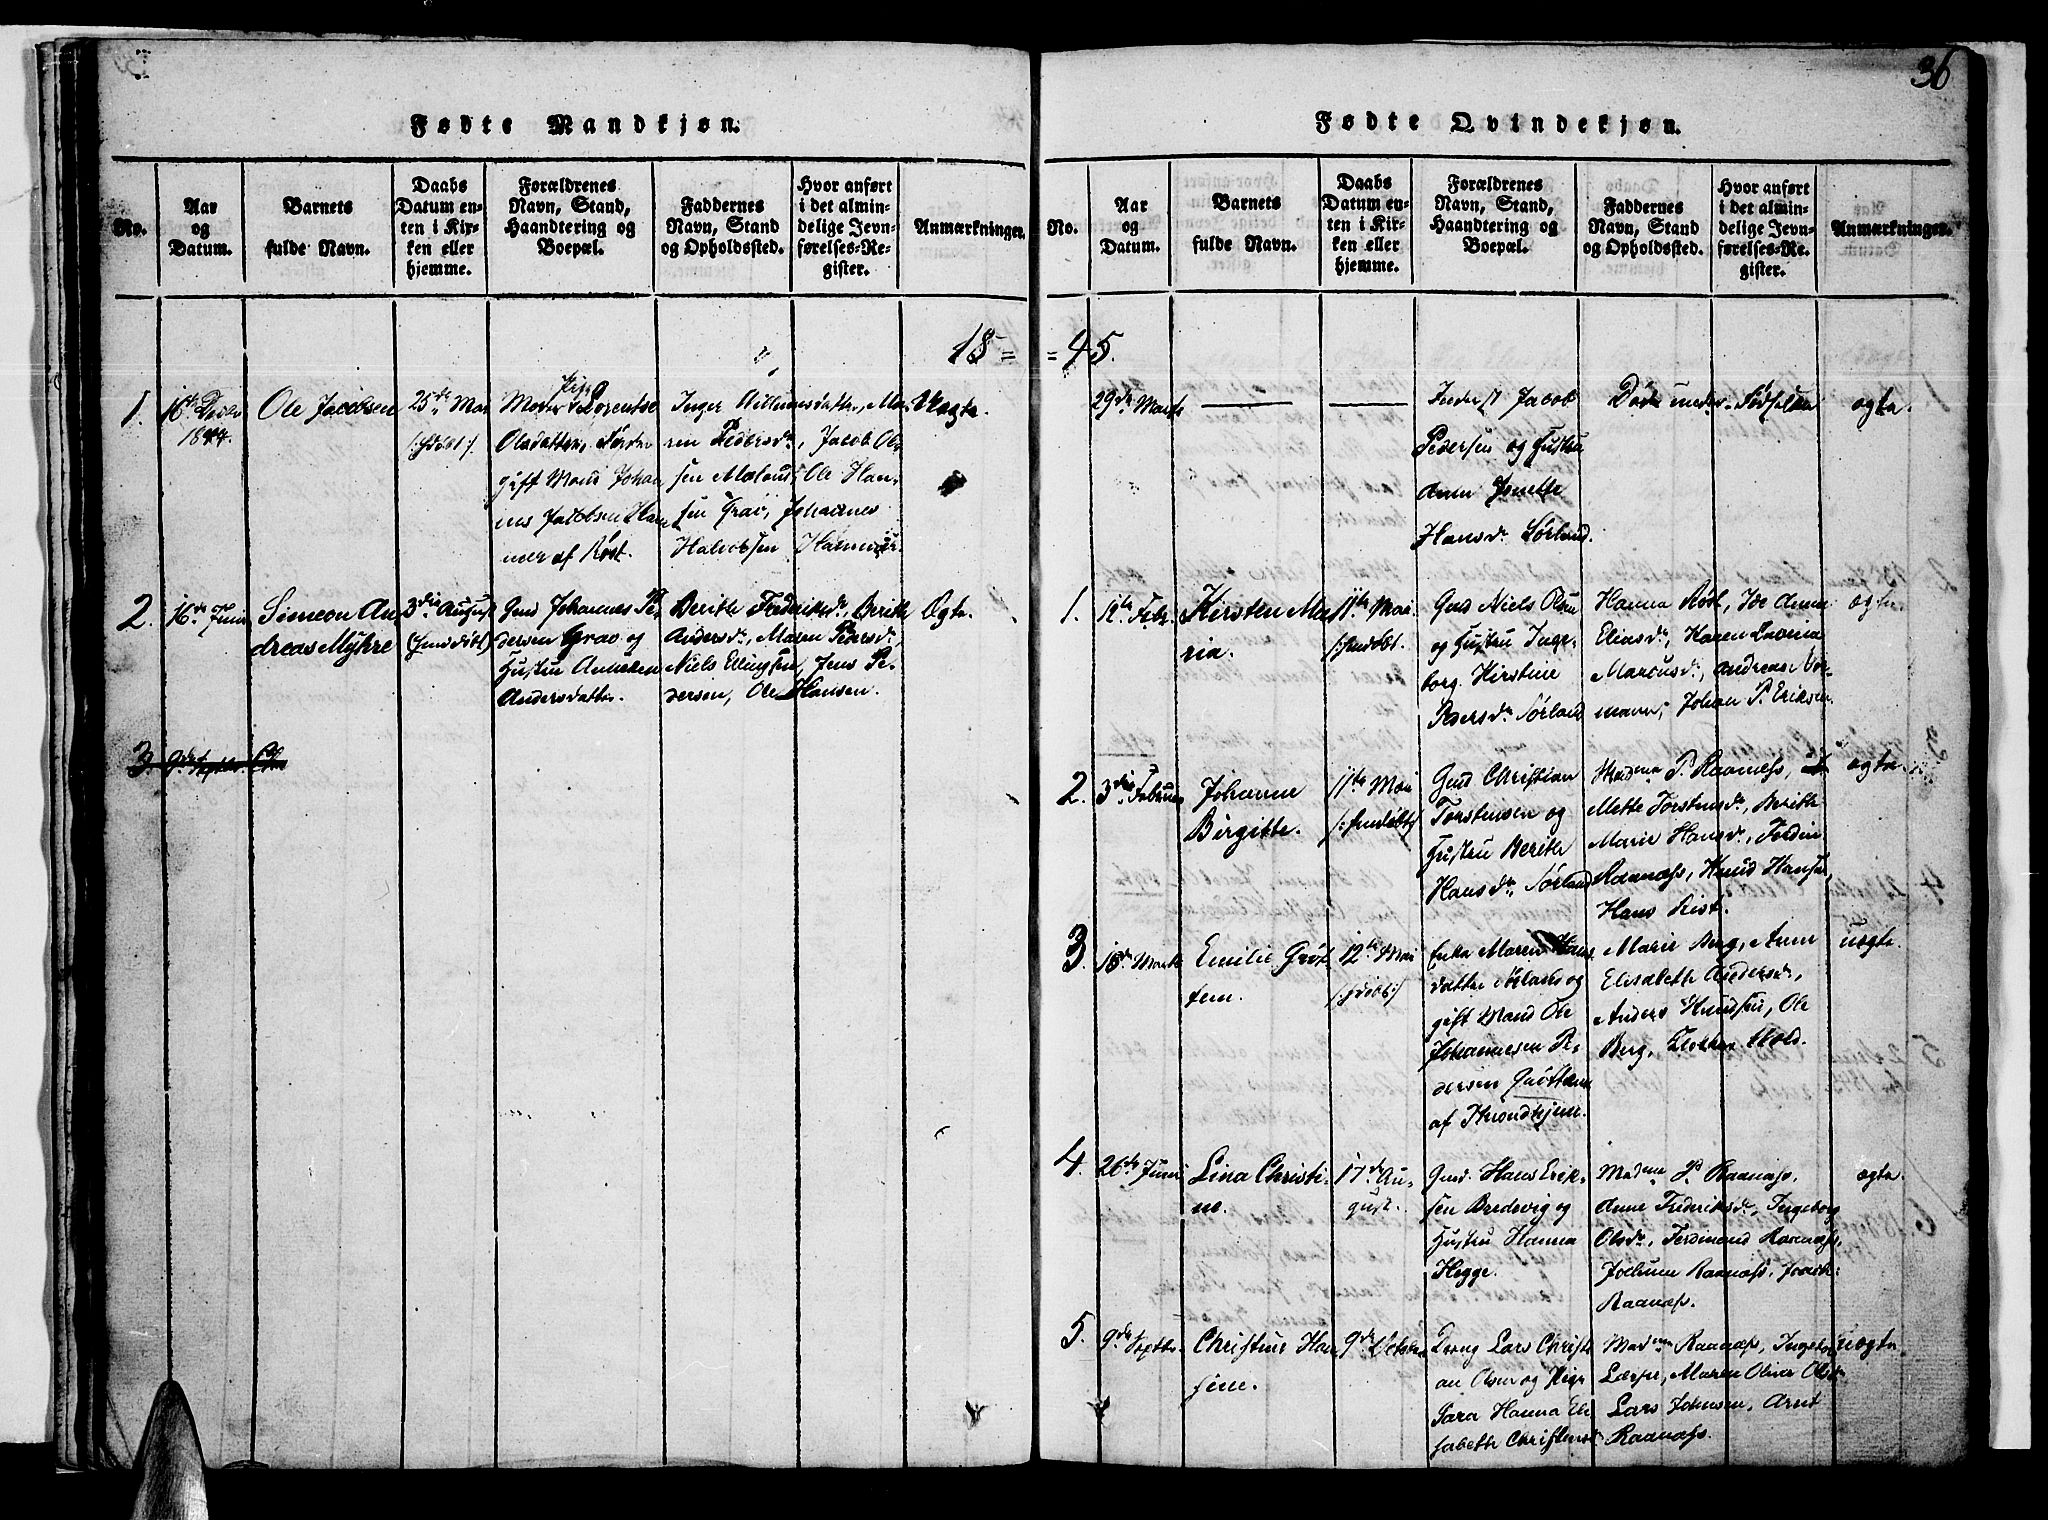 36
Fødte Mandkjøn.
No.
Aar
og
Datum.
Barnets
fulde Navn.
Daabs
Datum en-
ten i Kir-
ken eller
hjemme.
Forældrenes
Navn, Stand,
Haandtering og
Boepæl.
Faddernes
Navn, Stand
og Opholdssted.
Hvor anført
i det almin-
delige Jevn-
førelses-Re-
gister.
Anmærkninger.
18 =
1.
16de Decbr
1844.
Ole Jacobsen
25de Mai
/:hdøbt:/
Moder: Pige Lorentse
Olsdatter,
gift Mand Johan
nes Jacobsen Ham
mer af Røst.
Inger Willumsdatter, Ma-
ren Pedersdr, Jacob Ol-
sen Møland, Ole Han-
sen Grav, Johannes
Halvorsen Hammer.
Uægte.
2.
16de Juni
Simeon An
dreas Myhre
3die August
(hmdøbt)
Gmd Johannes Pe
dersen Grav og
Hustru Anneken
Andersdatter.
Berithe Frederiksdr, Berith
Andersdr, Maren Pedersdr,
Niels Ellingsen, Jens Pe-
dersen, Ole Hansen.
Ægte.
3. 9de Septbr.
Fødte Qvindekjøn.
No.
Aar
og
Datum.
Barnets
fulde Navn.
Daabs
Datum en-
ten i Kir-
ken eller
hjemme.
Forældrenes
Navn, Stand,
Haandtering og
Boepæl.
Faddernes
Navn, Stand
og Opholdssted.
Hvor anført
i det almin-
delige Jevn-
førelses-Re-
gister.
Anmærkninger.
= 45.
29de Marts
Inderst Jacob
Pedersen og Hustru
Anne Jonette
Hansdr Sørland.
Døde under Fødselen
ægte.
1.
12te Febr.
Kirsten Ma
ria.
11te Mai
/:hmdøbt.
Gmd Niels Olsen
og Hustru Inge-
borg Kirstine
Pedersdr Sørland
Hanna Røst, Anne
Eliasdr, Karen Lavina
Marcusdr, Andreas
mann, Johan P. Eriksen.
ægte
2.
3die Februar
Johanne
Birgitte.
11te Mai
/:hmdøbt/
Gmd Christian
Torstensen og
Hustru Berith
Hansdr Sørland
Madme P. Raanæss,
Mette Torstensdr, Berith
Marie Hansdr, Ferdin
Raanæss, Knud Hansen,
Hans Krist.
ægte
3.
18de Marts
Emilie Grøt
tem.
12te Mai
/:hdøbt:/
Enke Maren Hans
datter Sørland og
gift Mand Ole
Johannesen Pe-
dersen Grøttem
af Throndhjem.
Marie Berg, Anne
Elisabeth Andersdr,
Anders Knudsen, Ole
Berg, Wold.
uægte.
4.
26de Juni
Lina Christi-
ne.
17de Au-
gust.
Gmd. Hans Erik-
sen Bredevig og
Hustru Hanna
Hegge.
Madme P. Raanæss,
Anne Frederiksdr, Ingeborg
Olsdr, Ferdinand Raanæss,
Jochum Raanæss,
Raanæss.
ægte
5.
9de Septbr.
Christine Han
sine.
9de October
Dreng Lars Christi
an Olsen og Pige
Sara Hanna Eli
sabeth Christensd
Madme Raanæss, Ingeb
Maren Olina Olsdr
Lars Johnsen, Arnt
Raanæss.
uægte